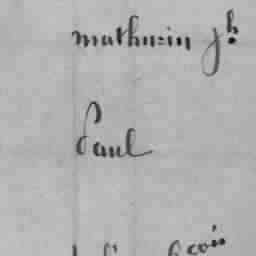 mathurin jh
Paul